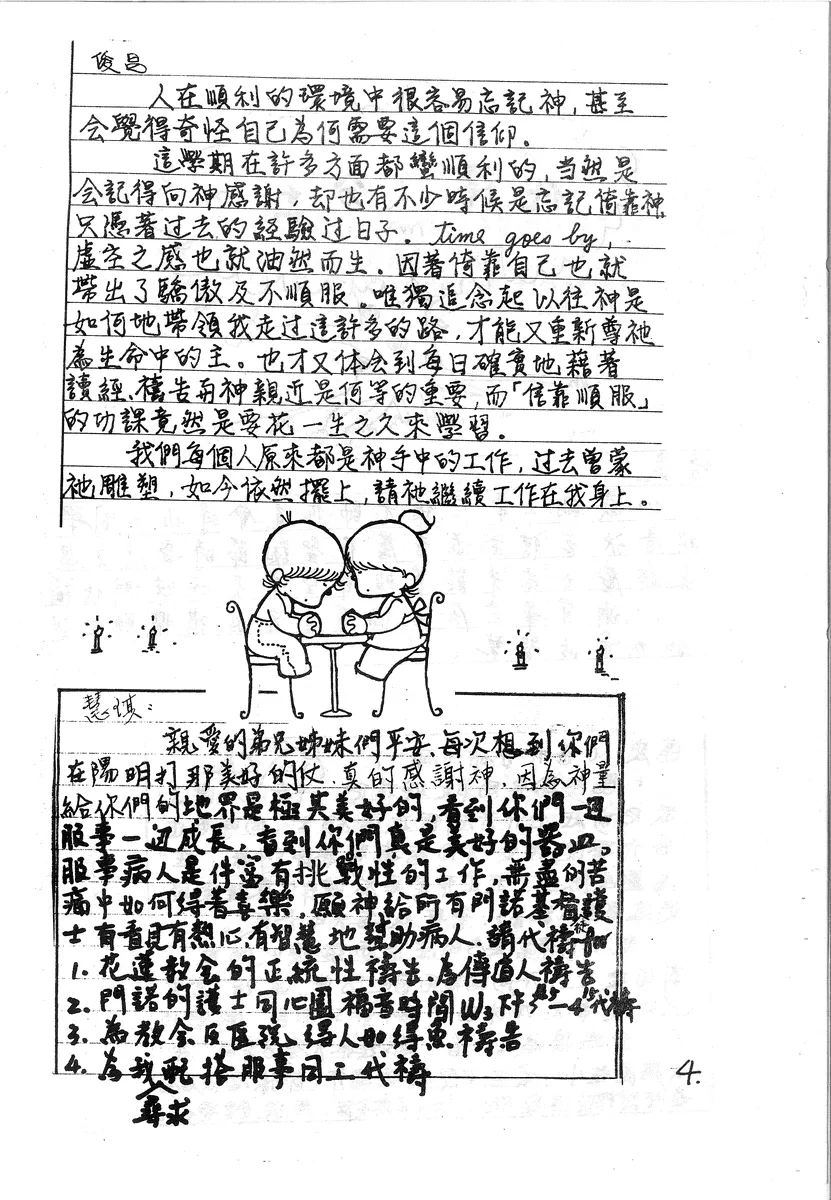 俊昌
人在順利的環境中很容易忘記神,甚至
会覺得奇怪自己為何需要這個信仰。
這學期在許多方面都蠻順利的,当然是
会記得向神感謝,却也有不少時候是忘記倚靠神,
只憑著过去的經驗过日子。time goes by,
虛空之感也就油然而生。因著倚靠自己也就
帶出了驕傲及不順服。唯獨追念起以往神是
如何地帶領我走过這許多的路,才能又重新尊祂
為生命中的主。也才又体会到每日確實地藉著
讀經、禱告與神親近是何等的重要,而「信靠順服」
的功課竟然是要花一生之久來學習。
我們每個人原來都是神手中的工作,过去曾蒙
祂雕塑,如今依然擺上,請祂繼續工作在我身上。
慧琪:
親愛的弟兄姊妹們平安,每次想到你們
在陽明打那美好的仗,真的感謝神,因為神量
給你們的地界是極其美好的,看到你們一边
服事一边成長,看到你們真是美好的器皿。
服事病人是件富有挑戰性的工作,無盡的苦
痛中如何得著喜樂,願神給所有門諾基督護
士有看見有熱心有智慧地幫助病人,請代禱
1. 花蓮教会的正統性禱告,為傳道人禱告
2. 門諾的護士同心圓福音時間W3下午 代禱
3. 為教会及医院得人如得魚禱告
4. 為我尋求配搭服事同工代禱
4.